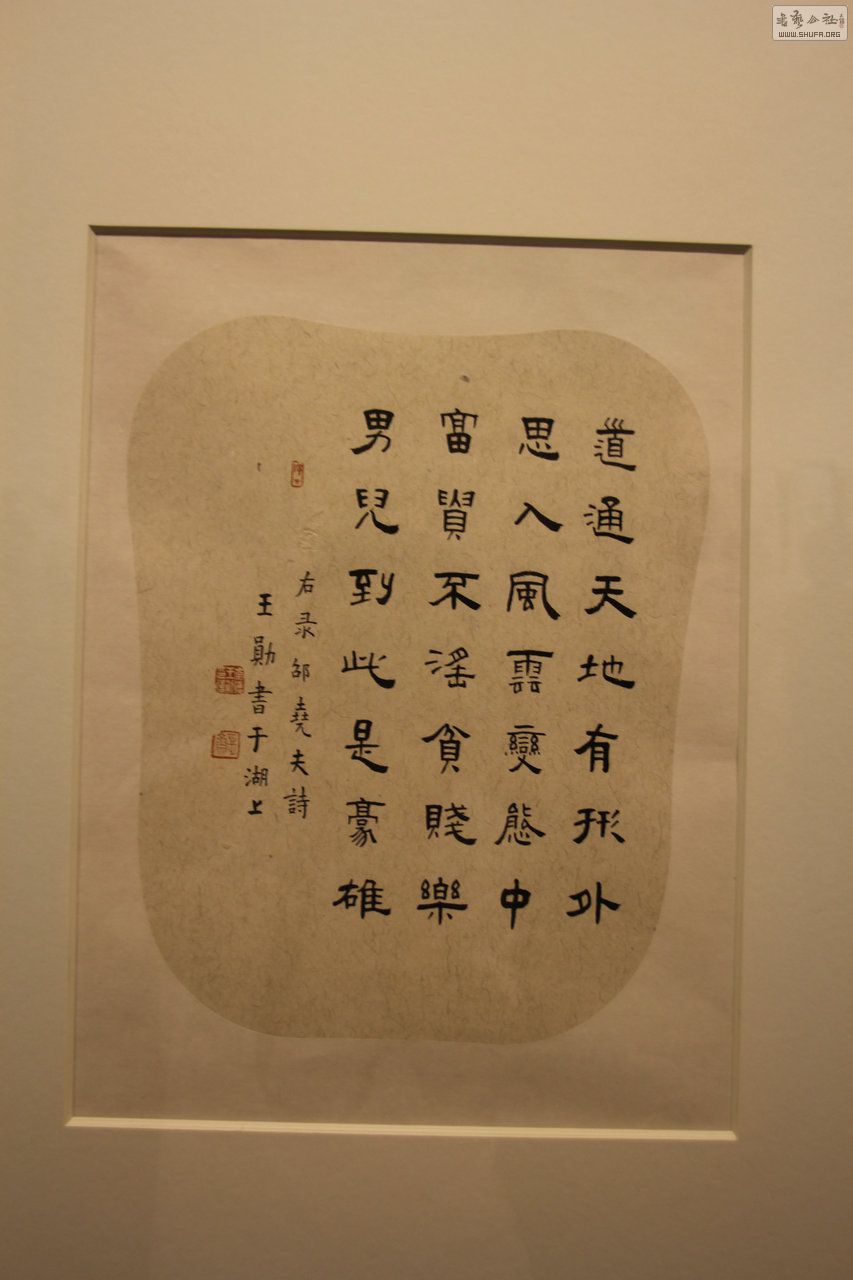 道通天地有形外
思入風雲變態中
富貴不滛貧賤樂
男兒到此是豪雄
右录邵堯夫詩
王勛書于湖上
WWW.SHUFA.ORG